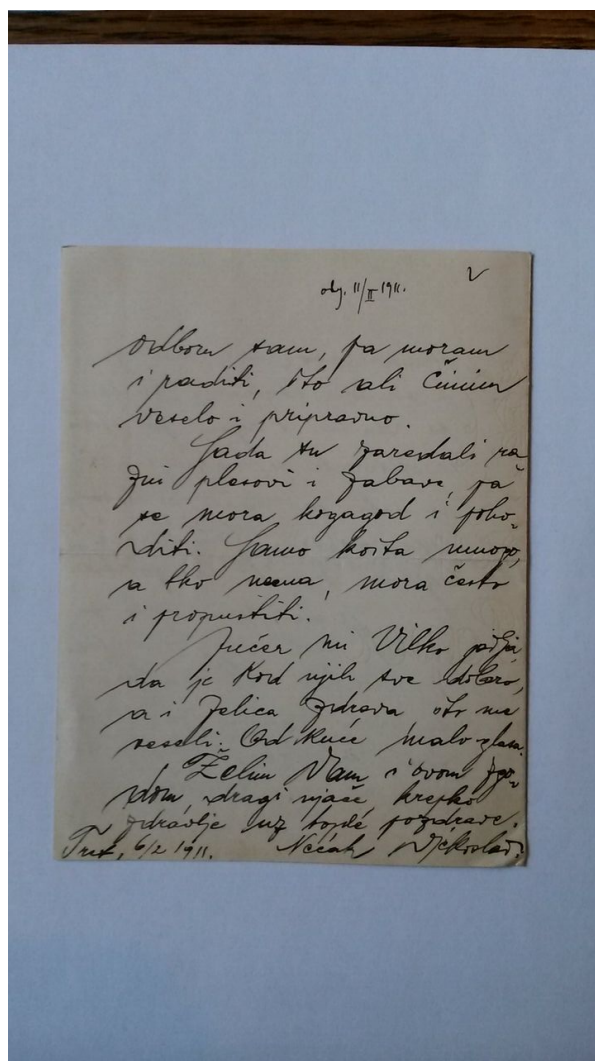 odg. 11/II 1911. 2
odboru sam, pa moram
i raditi, što ali činim
veselo i pripravno.
Sada su zaredali ra-
zni plesovi i zabave, pa
se mora kogagod i poho-
diti. Samo košta mnogo,
a tko nema, mora često
i propustiti.
Jučer mi Vilko piše,
da je kod njih sve dobro,
a i Jelica zdrava što me
veseli. Od kuće malo glasa.
Želim Vam i ovom zgo-
dom, dragi ujače, krepko
zdravlje uz pozdrave.
Trst, 6/2 1911. Nećak Vjekoslav.